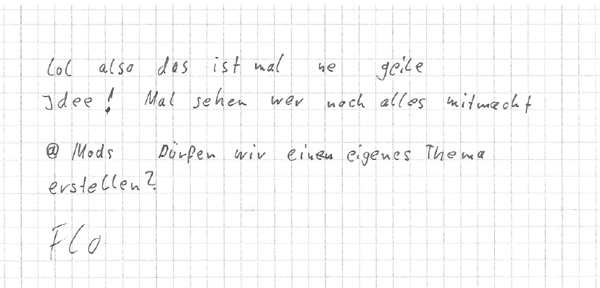 lol also das ist mal ne geile
Idee! Mal sehen wer noch alles mitmacht
@ Mods Dürfen wir einen eigenes Thema
erstellen?
Flo